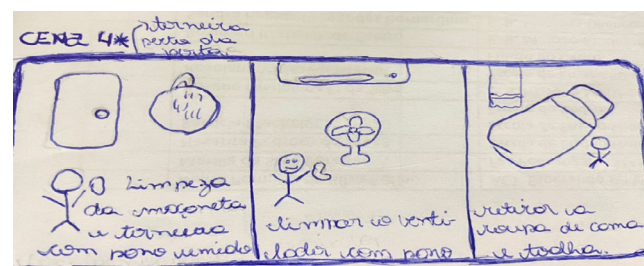 CENA 4*
torneira
perto da
porta
Limpeza
da maçaneta
e torneira
com pano úmido
limpar o venti
lador com pano
retirar a
roupa de cama
e toalha.